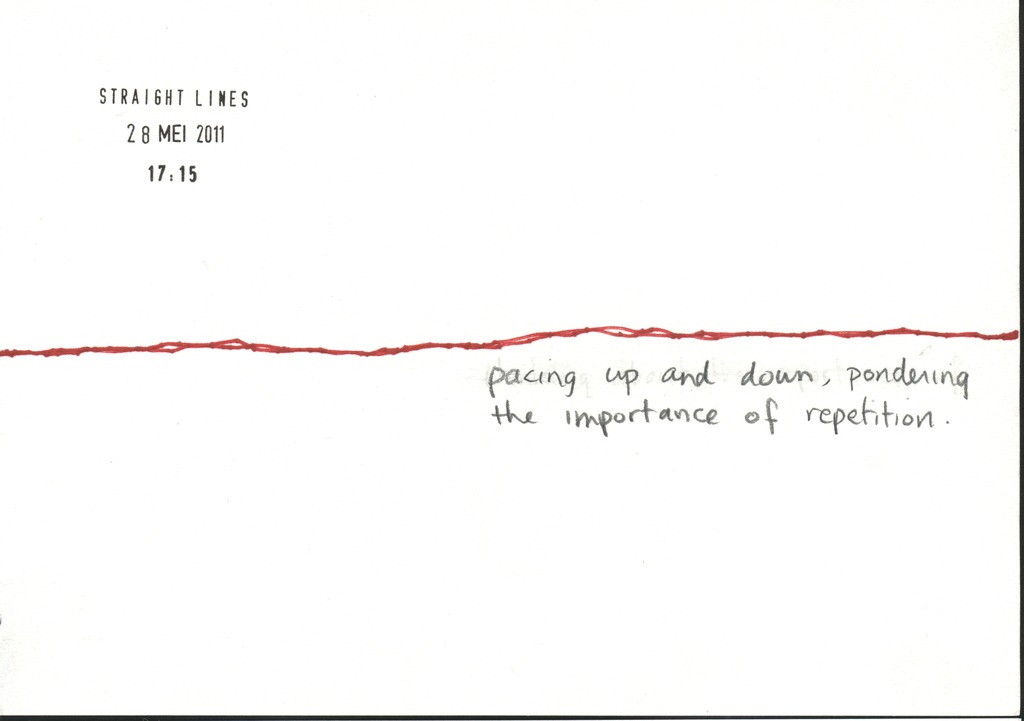 STRAIGHT LINES
28 MEI 2011
17:15
pacing up and down, pondering
the importance of repetition.